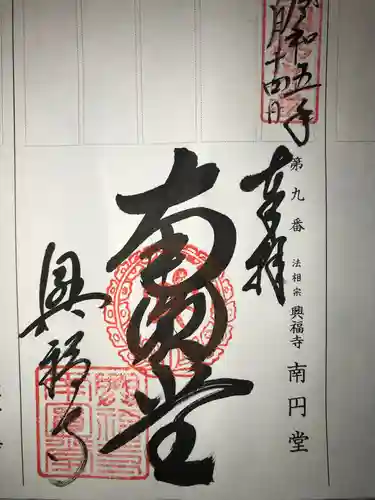 令和五年
月十四日
第九番 法相宗 興福寺 南円堂
奉拝
南円堂
興福寺